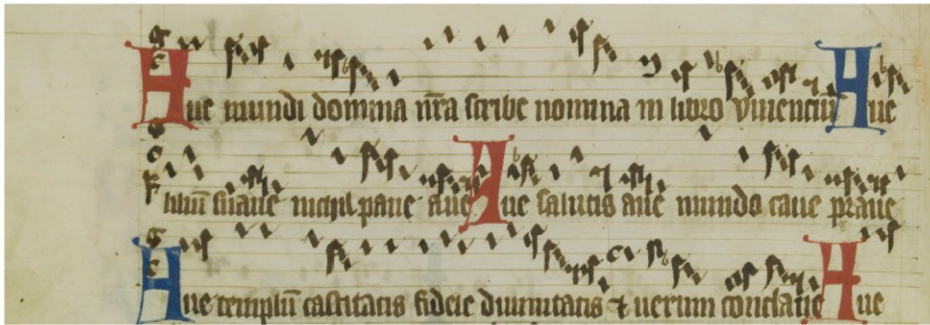 Aue mundi domina nr̄a scribe nomina in libro viuenciū Aue
liliū suaue nichil paue aue Aue salutis aue mundo caue praue
Aue templū castitatis fidele diuinitatis ⁊ uerum conclaue Aue